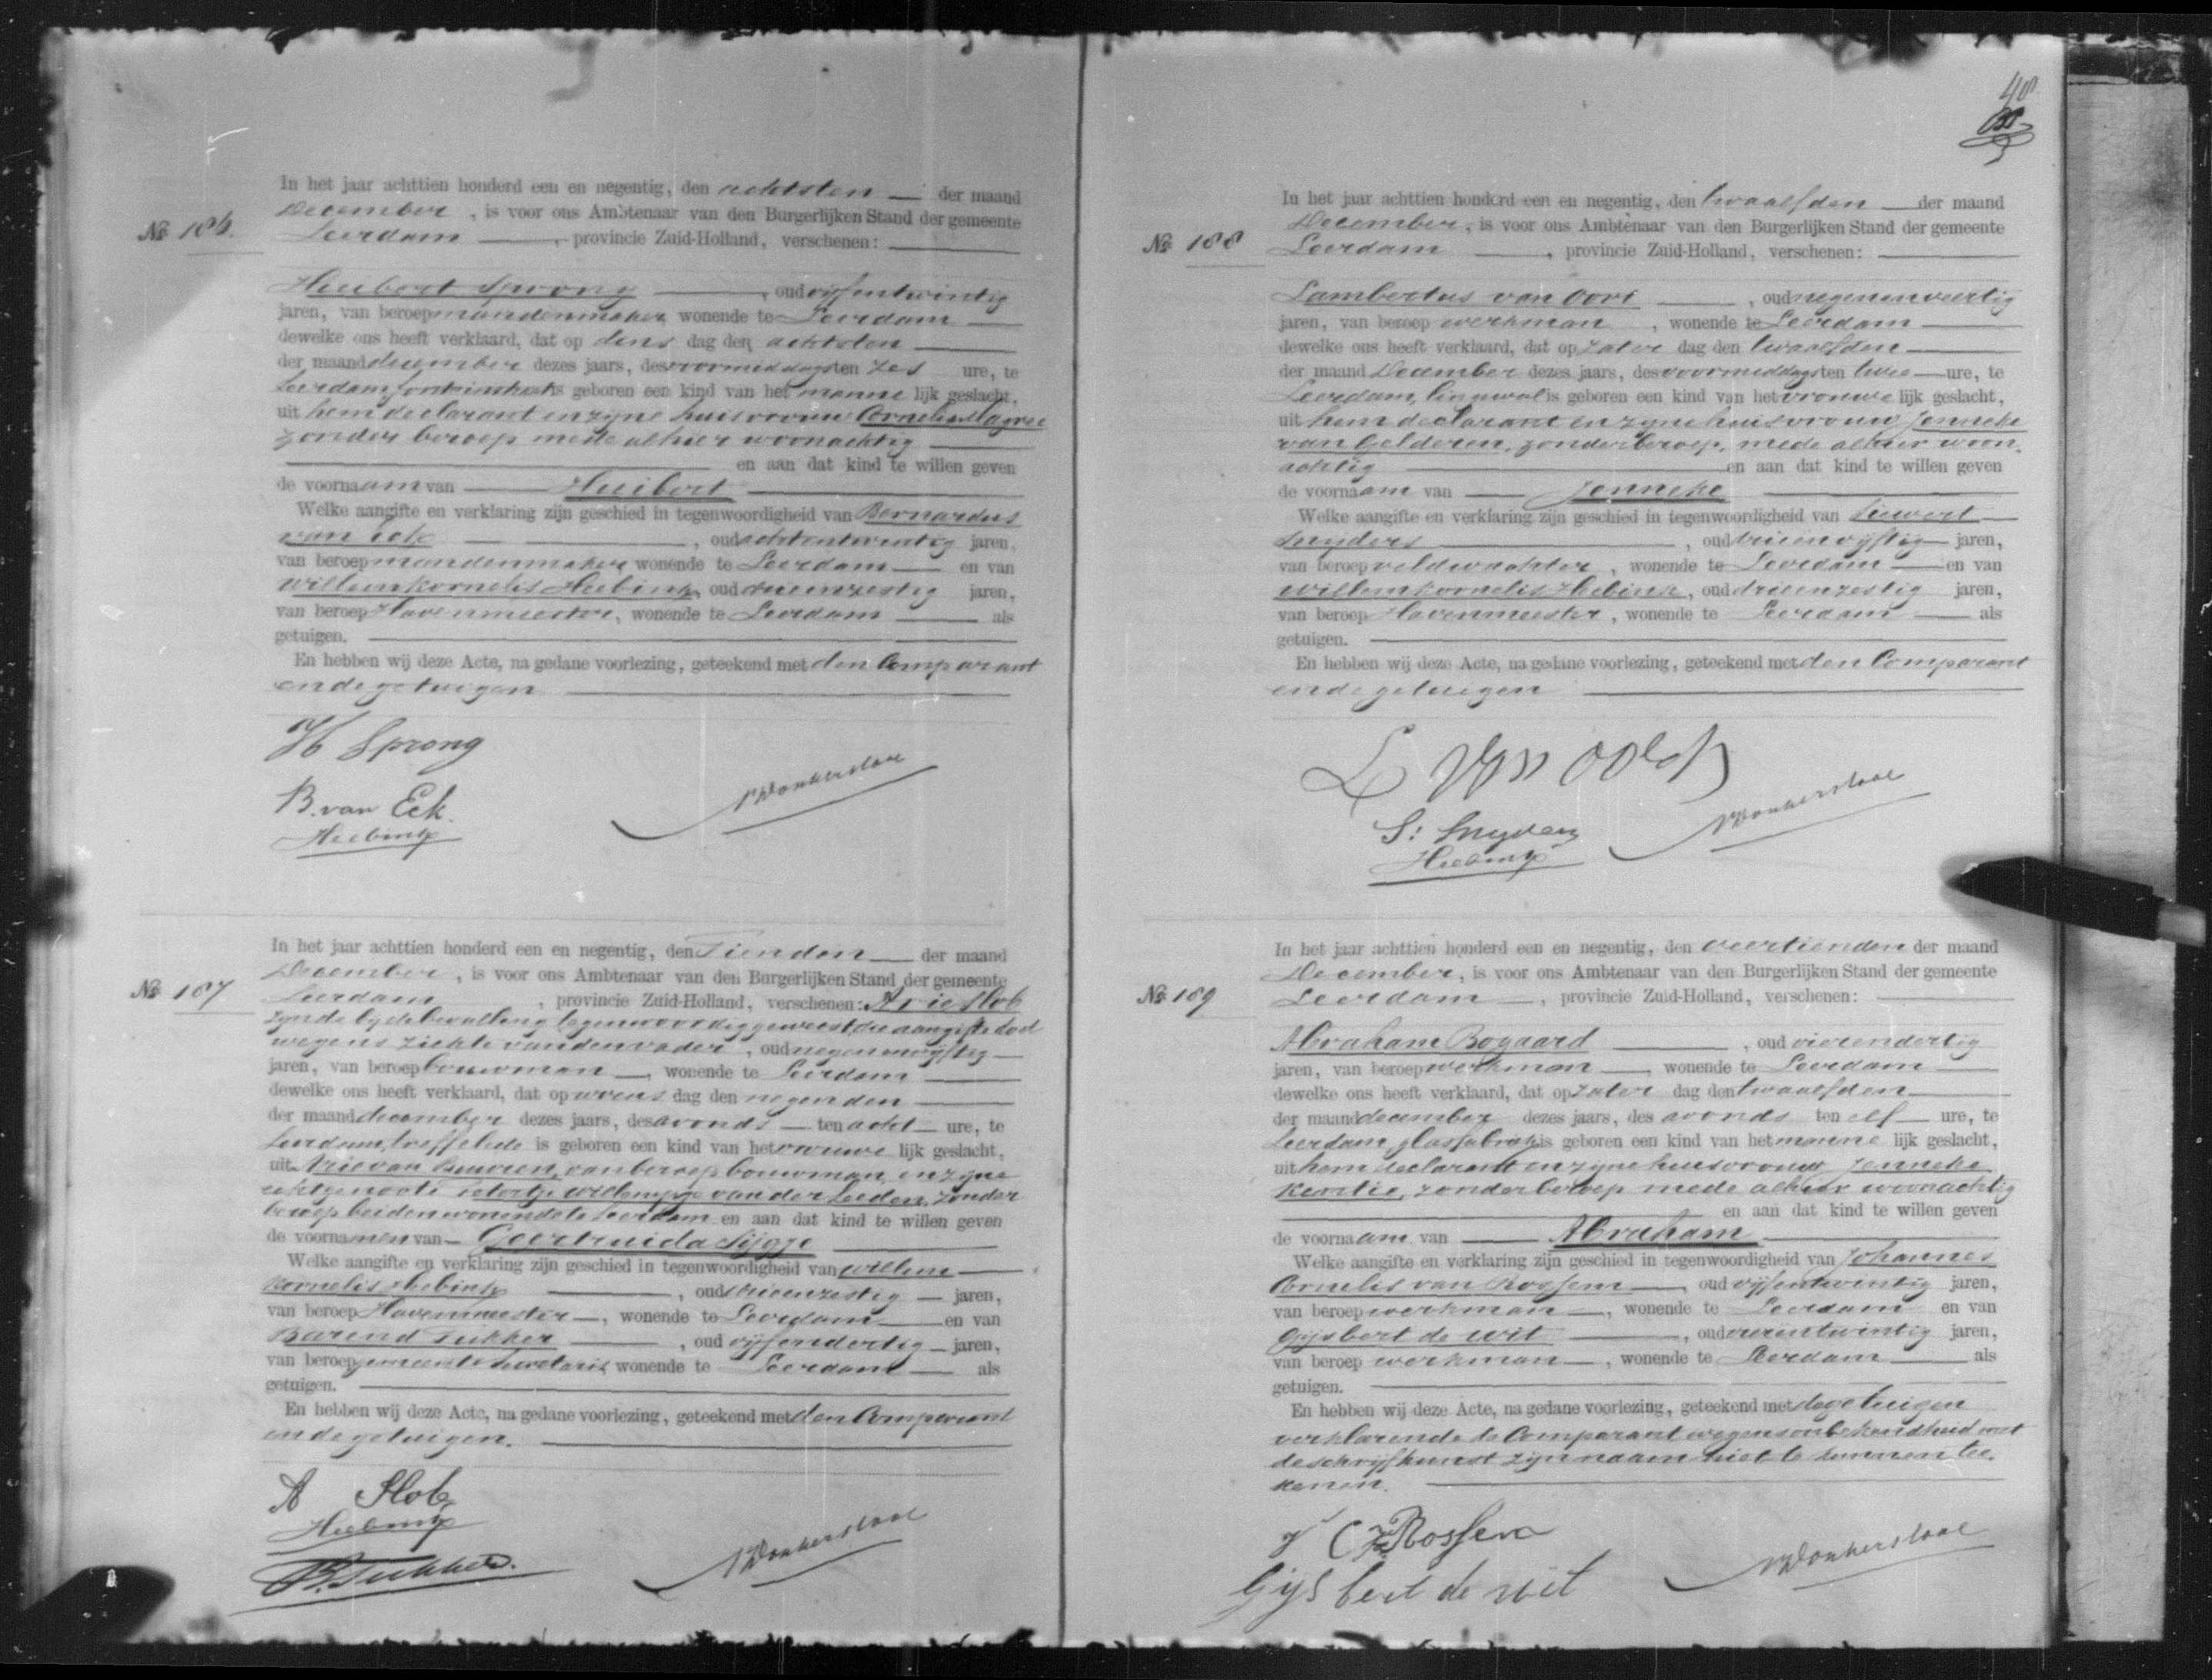 48
In het jaar achttien honderd een en negentig, den achtsten der maand
No 186.
December, is voor ons Ambtenaar van den Burgerlijken Stand der gemeente
Leerdam, provincie Zuid-Holland, verschenen:
Huibert Sprong, oud vijfentwintig
jaren, van beroep mandenmaker wonende te Leerdam
dewelke ons heeft verklaard, dat op dens dag den achtsten
der maand december dezes jaars, des voormiddags ten zes ure, te
Leerdam is geboren een kind van het manne lijk geslacht,
uit hem declarant en zyne huisvrouw Cornelia
zonder beroep mede alhier woonachtig
en aan dat kind te willen geven
de voornaam van Huibert
Welke aangifte en verklaring zijn geschied in tegenwoordigheid van Bernardus
van Eck, oud achtentwintig jaren,
van beroep mandenmaker wonende te Leerdam en van
Willem Kornelis Heebink, oud drieenzestig jaren,
van beroep Havenmeester, wonende te Leerdam als
getuigen.
En hebben wij deze Acte, na gedane voorlezing, geteekend met den Comparant
en de getuigen
H Sprong
B. van Eck.
Heebink
Donkersloot
In het jaar achttien honderd een en negentig, den Tienden der maand
No 187
December, is voor ons Ambtenaar van den Burgerlijken Stand der gemeente
Leerdam, provincie Zuid-Holland, verschenen: Arie Slob
zynde by de bevalling tegenwoordig geweest, die aangifte doet
wegens ziekte van den vader, oud negenenvyftig
jaren, van beroep bouwman, wonende te Leerdam
dewelke ons heeft verklaard, dat op woens dag den negenden
der maand december dezes jaars, des avonds ten acht ure, te
Leerdam, is geboren een kind van het vrouwe lijk geslacht,
uit Arie van Buuren, van beroep bouwman, en zyne
echtgenoote Willempje van der Leeden, zonder
beroep beiden wonende te Leerdam en aan dat kind te willen geven
de voornamen van Geertruida Sijgje
Welke aangifte en verklaring zijn geschied in tegenwoordigheid van Willem
Kornelis Heebink, oud drieenzestig jaren,
van beroep Havenmeester, wonende te Leerdam en van
Barend Tukker, oud vijfendertig jaren,
van beroep gemeente Secretaris wonende te Leerdam als
getuigen.
En hebben wij deze Acte, na gedane voorlezing, geteekend met den Comparant
en de getuigen.
A Slob
Heebink
B. Tukker.
Donkersloot
In het jaar achttien honderd een en negentig, den twaalfden der maand
No 188
December, is voor ons Ambtenaar van den Burgerlijken Stand der gemeente
Leerdam, provincie Zuid-Holland, verschenen:
Lambertus van Oort, oud negenenveertig
jaren, van beroep werkman, wonende te Leerdam
dewelke ons heeft verklaard, dat op zater dag den twaalfden
der maand December dezes jaars, des voormiddags ten twee ure, te
Leerdam, is geboren een kind van het vrouwe lijk geslacht,
uit hem declarant en zyne huisvrouw Jenneke
van Gelderen, zonder beroep, mede alhier woon-
achtig en aan dat kind te willen geven
de voornaam van Jenneke
Welke aangifte en verklaring zijn geschied in tegenwoordigheid van
Snyders, oud drieenvijftig jaren,
van beroep veldwachter, wonende te Leerdam en van
Willem Kornelis Heebink, oud drieenzestig jaren,
van beroep Havenmeester, wonende te Leerdam als
getuigen.
En hebben wij deze Acte, na gedane voorlezing, geteekend met den Comparant
en de getuigen
L van oort
S: Snyders
Heebink
Donkersloot
In het jaar achttien honderd een en negentig, den veertienden der maand
No 189
December, is voor ons Ambtenaar van den Burgerlijken Stand der gemeente
Leerdam, provincie Zuid-Holland, verschenen:
Abraham Bogaard, oud vierendertig
jaren, van beroep werkman, wonende te Leerdam
dewelke ons heeft verklaard, dat op zater dag den twaalfden
der maand december dezes jaars, des avonds ten elf ure, te
Leerdam, glasfabriek is geboren een kind van het manne lijk geslacht,
uit hem declarant en zyne huisvrouw Jenneke
zonder beroep mede alhier woonachtig
en aan dat kind te willen geven
de voornaam van Abraham
Welke aangifte en verklaring zijn geschied in tegenwoordigheid van Johannes
Cornelis van Rossem, oud vyfentwintig jaren,
van beroep werkman, wonende te Leerdam en van
Gysbert de Wit, oud jaren,
van beroep werkman, wonende te Leerdam als
getuigen.
En hebben wij deze Acte, na gedane voorlezing, geteekend met de getuigen
verklarende de Comparant wegens onbekendheid met
de schryfkunst zyn naam niet te kunnen tee-
kenen.
J C v Rossem
Gijsbert de wit
Donkersloot